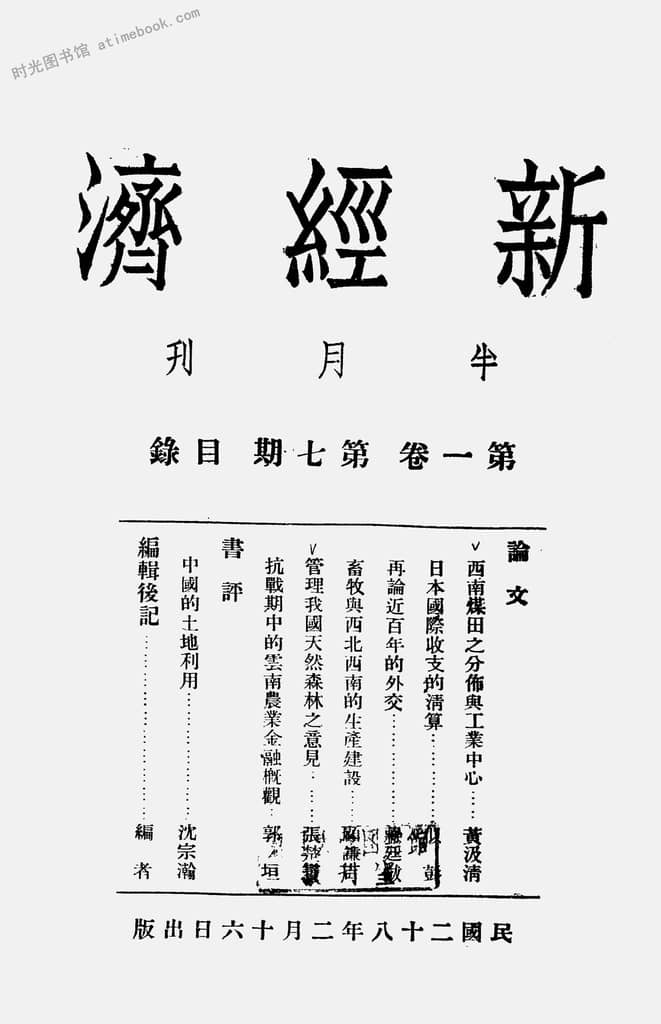 时光图书馆 atimebook.com
新經濟
半月刊
第一卷 第七期 目錄
論文
西南煤田之分佈與工業中心……黃汲清
日本國際收支的清算……
再論近百年的外交……蔣廷黻
畜牧與西北西南的生產建設……
管理我國天然森林之意見……張
抗戰期中的雲南農業金融概觀…郭垣
書評
中國的土地利用……沈宗瀚
編輯後記……編者
民國二十八年二月十六日出版